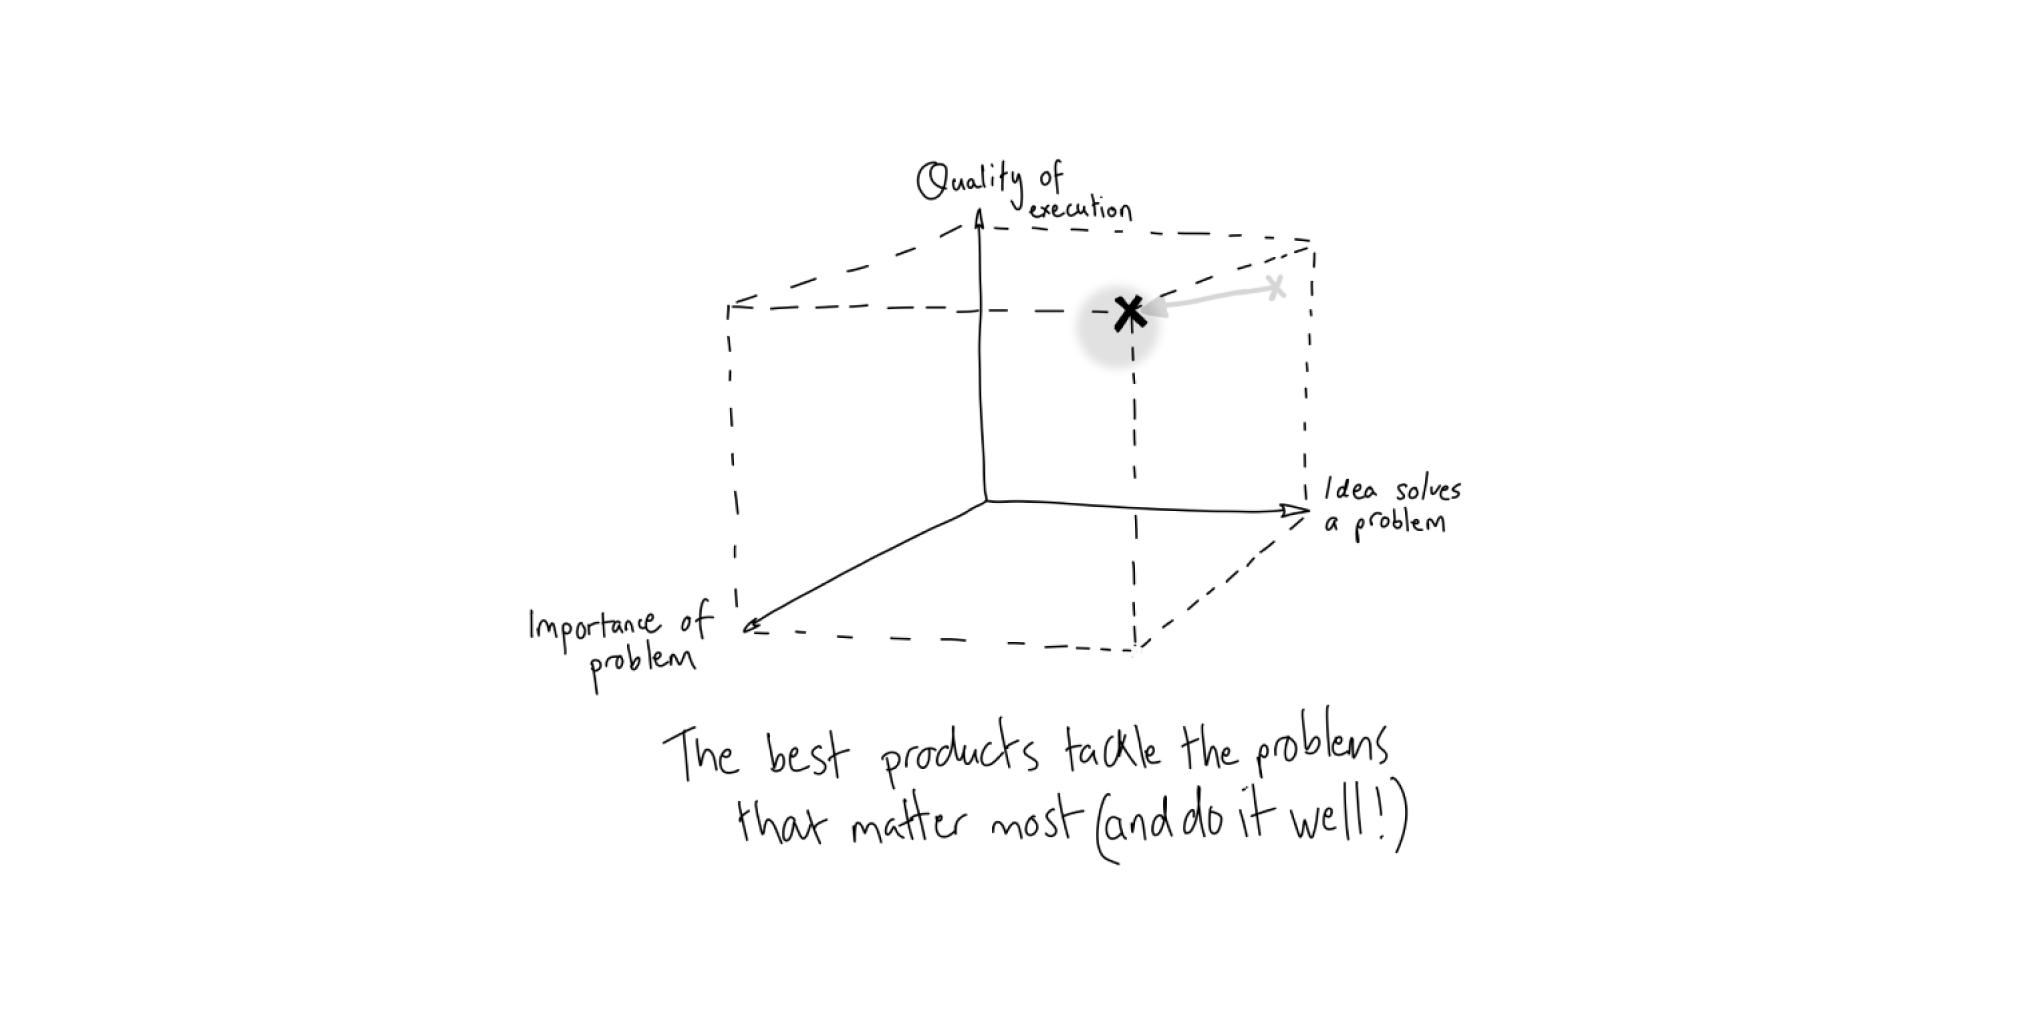 Quality of
execution
Idea solves
a problem
Importance of
problem
The best products tackle the problems
that matter most (and do it well!)